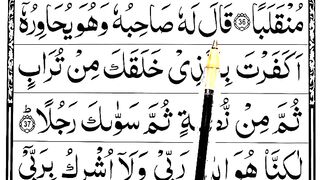 مُنْقَلَبًا 36 قَالَ لَهٗ صَاحِبُهٗ وَهُوَ يُحَاوِرُهٗٓ
اَكَفَرْتَ خَلَقَكَ مِنْ تُرَابٍ
ثُمَّ مِنْ ثُمَّ سَوّٰىكَ رَجُلًا 37
لٰكِنَّا۠ هُوَ رَبِّىْ وَلَاۤ اُشْرِكُ بِرَبِّىْۤ